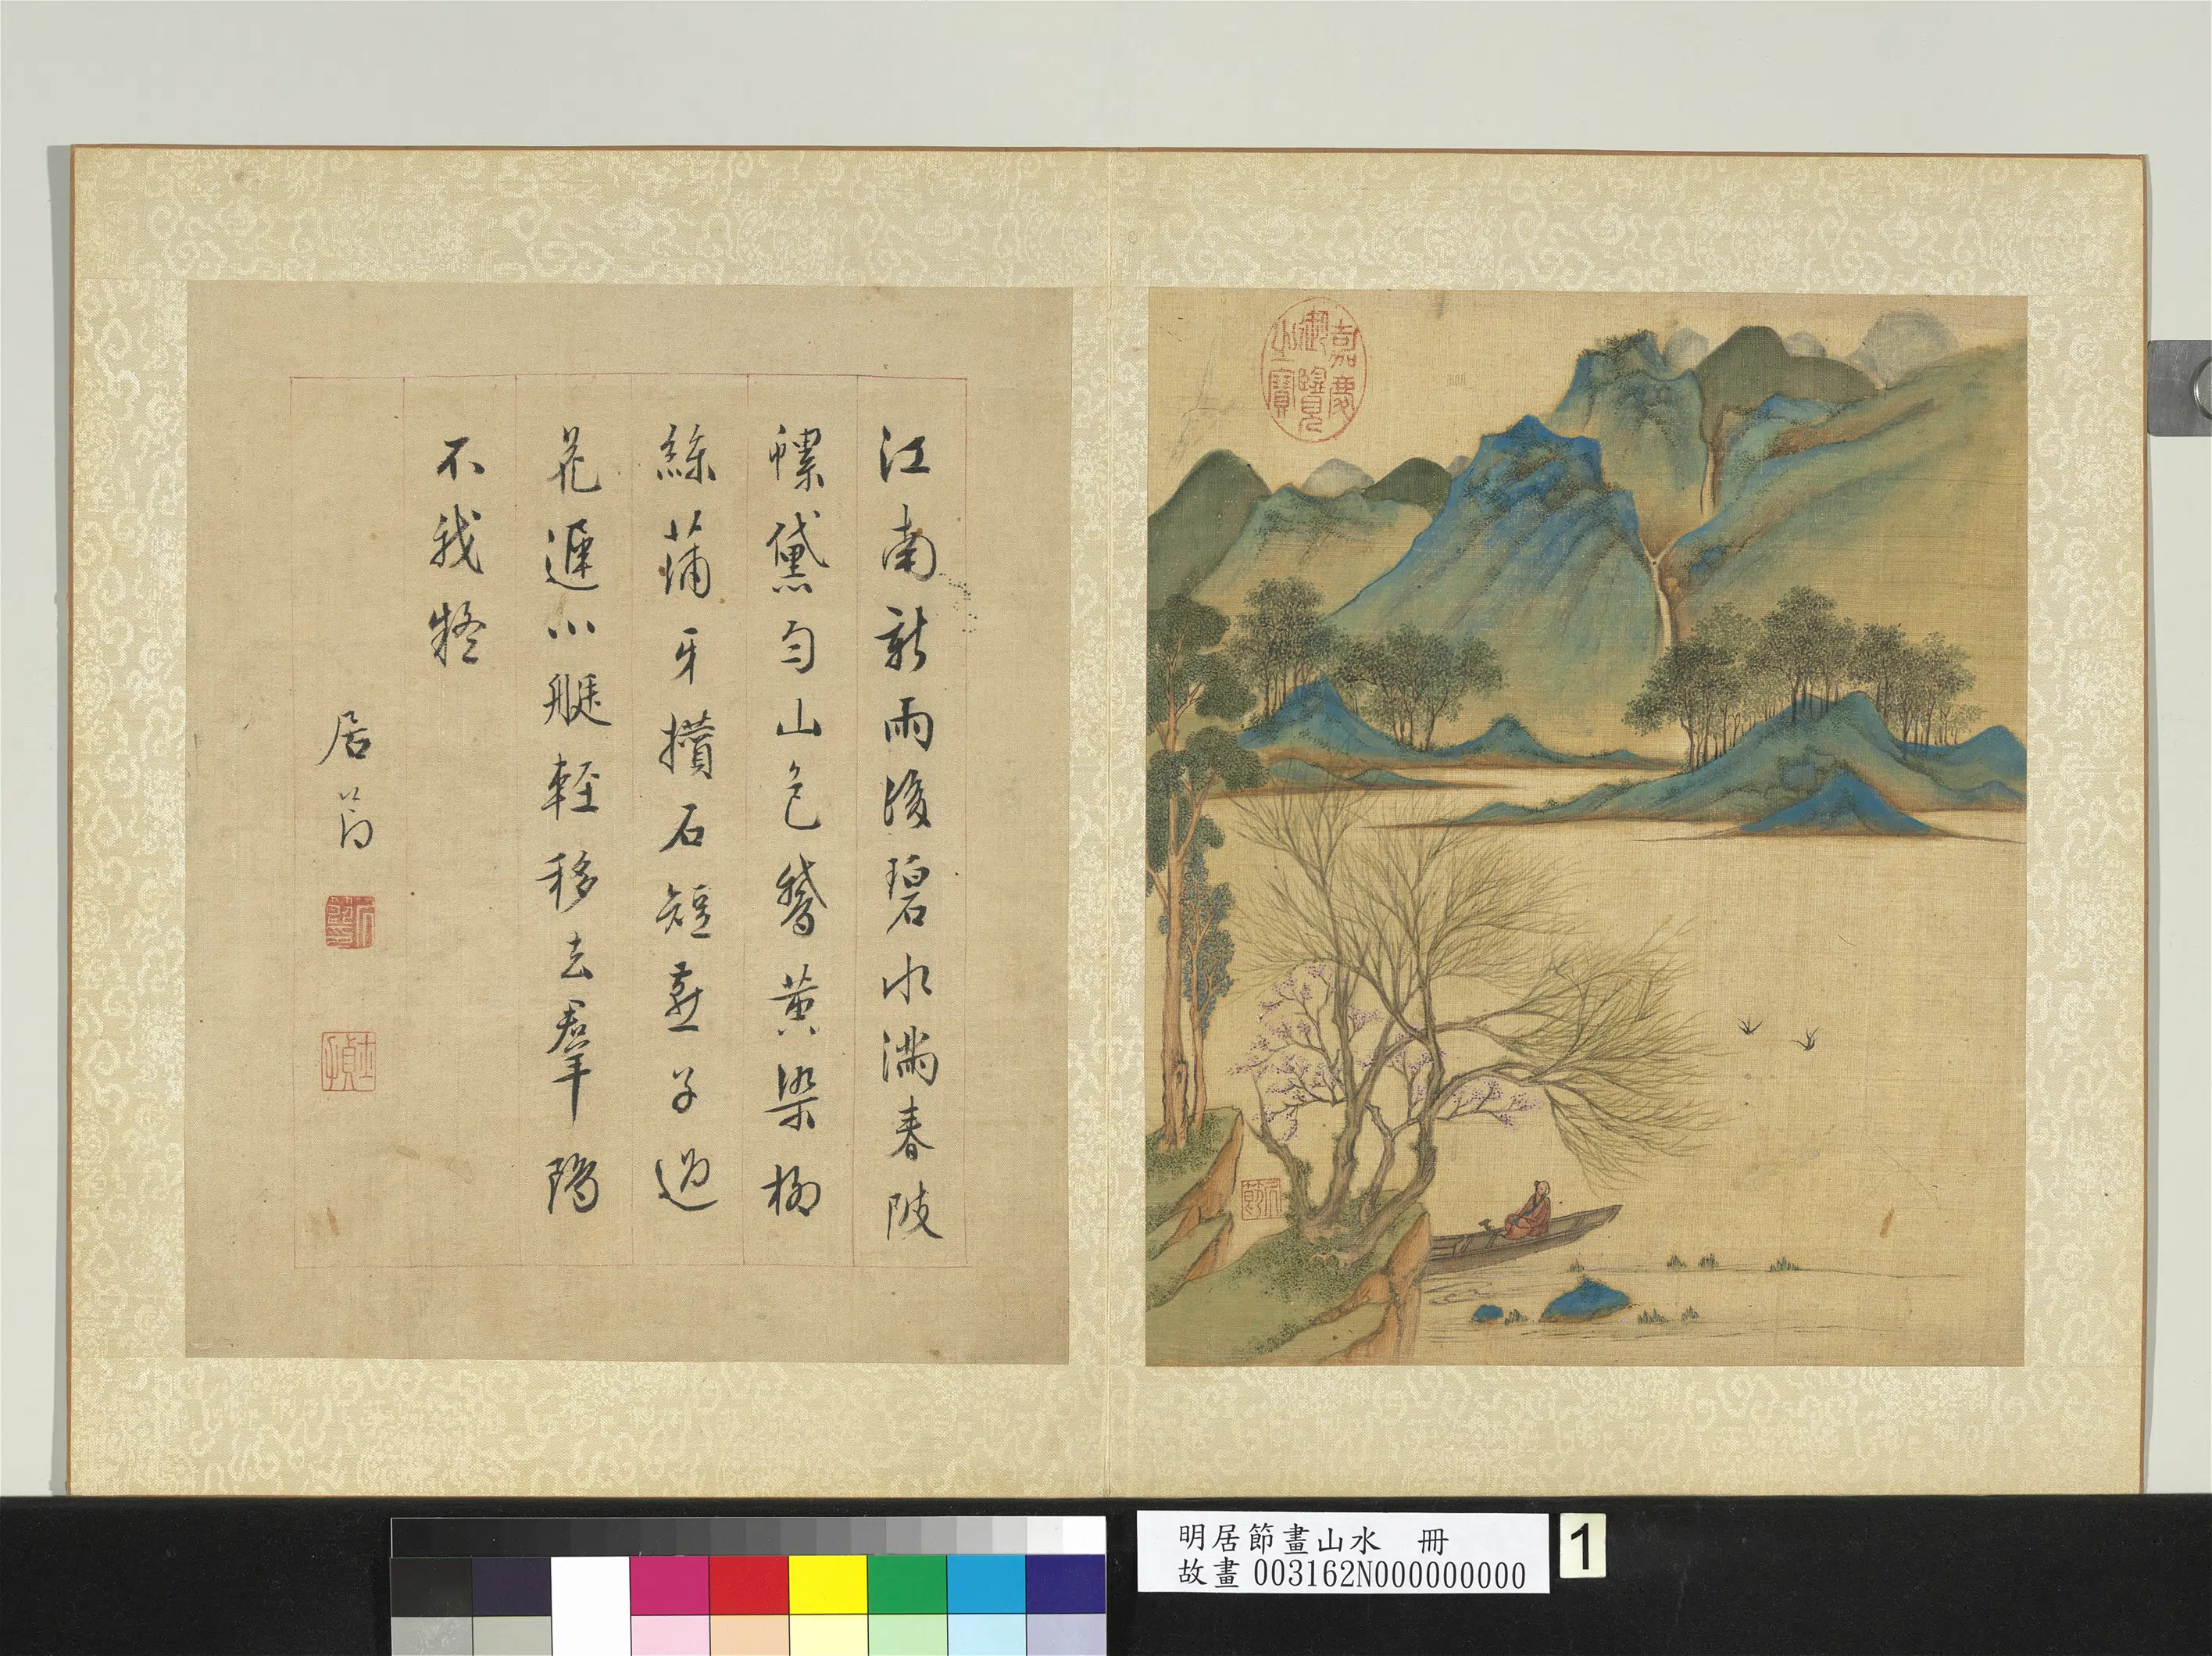 嘉慶
御覽
之寶
居節
江南新雨後碧水滿春陂
螺黛勻山色鵝黃染柳
絲蒲牙攢石短燕子過
花遲小艇輕移去羣鷗
不我疑
居節
居節
明居節畫山水 冊
故畫 003162N000000000
1